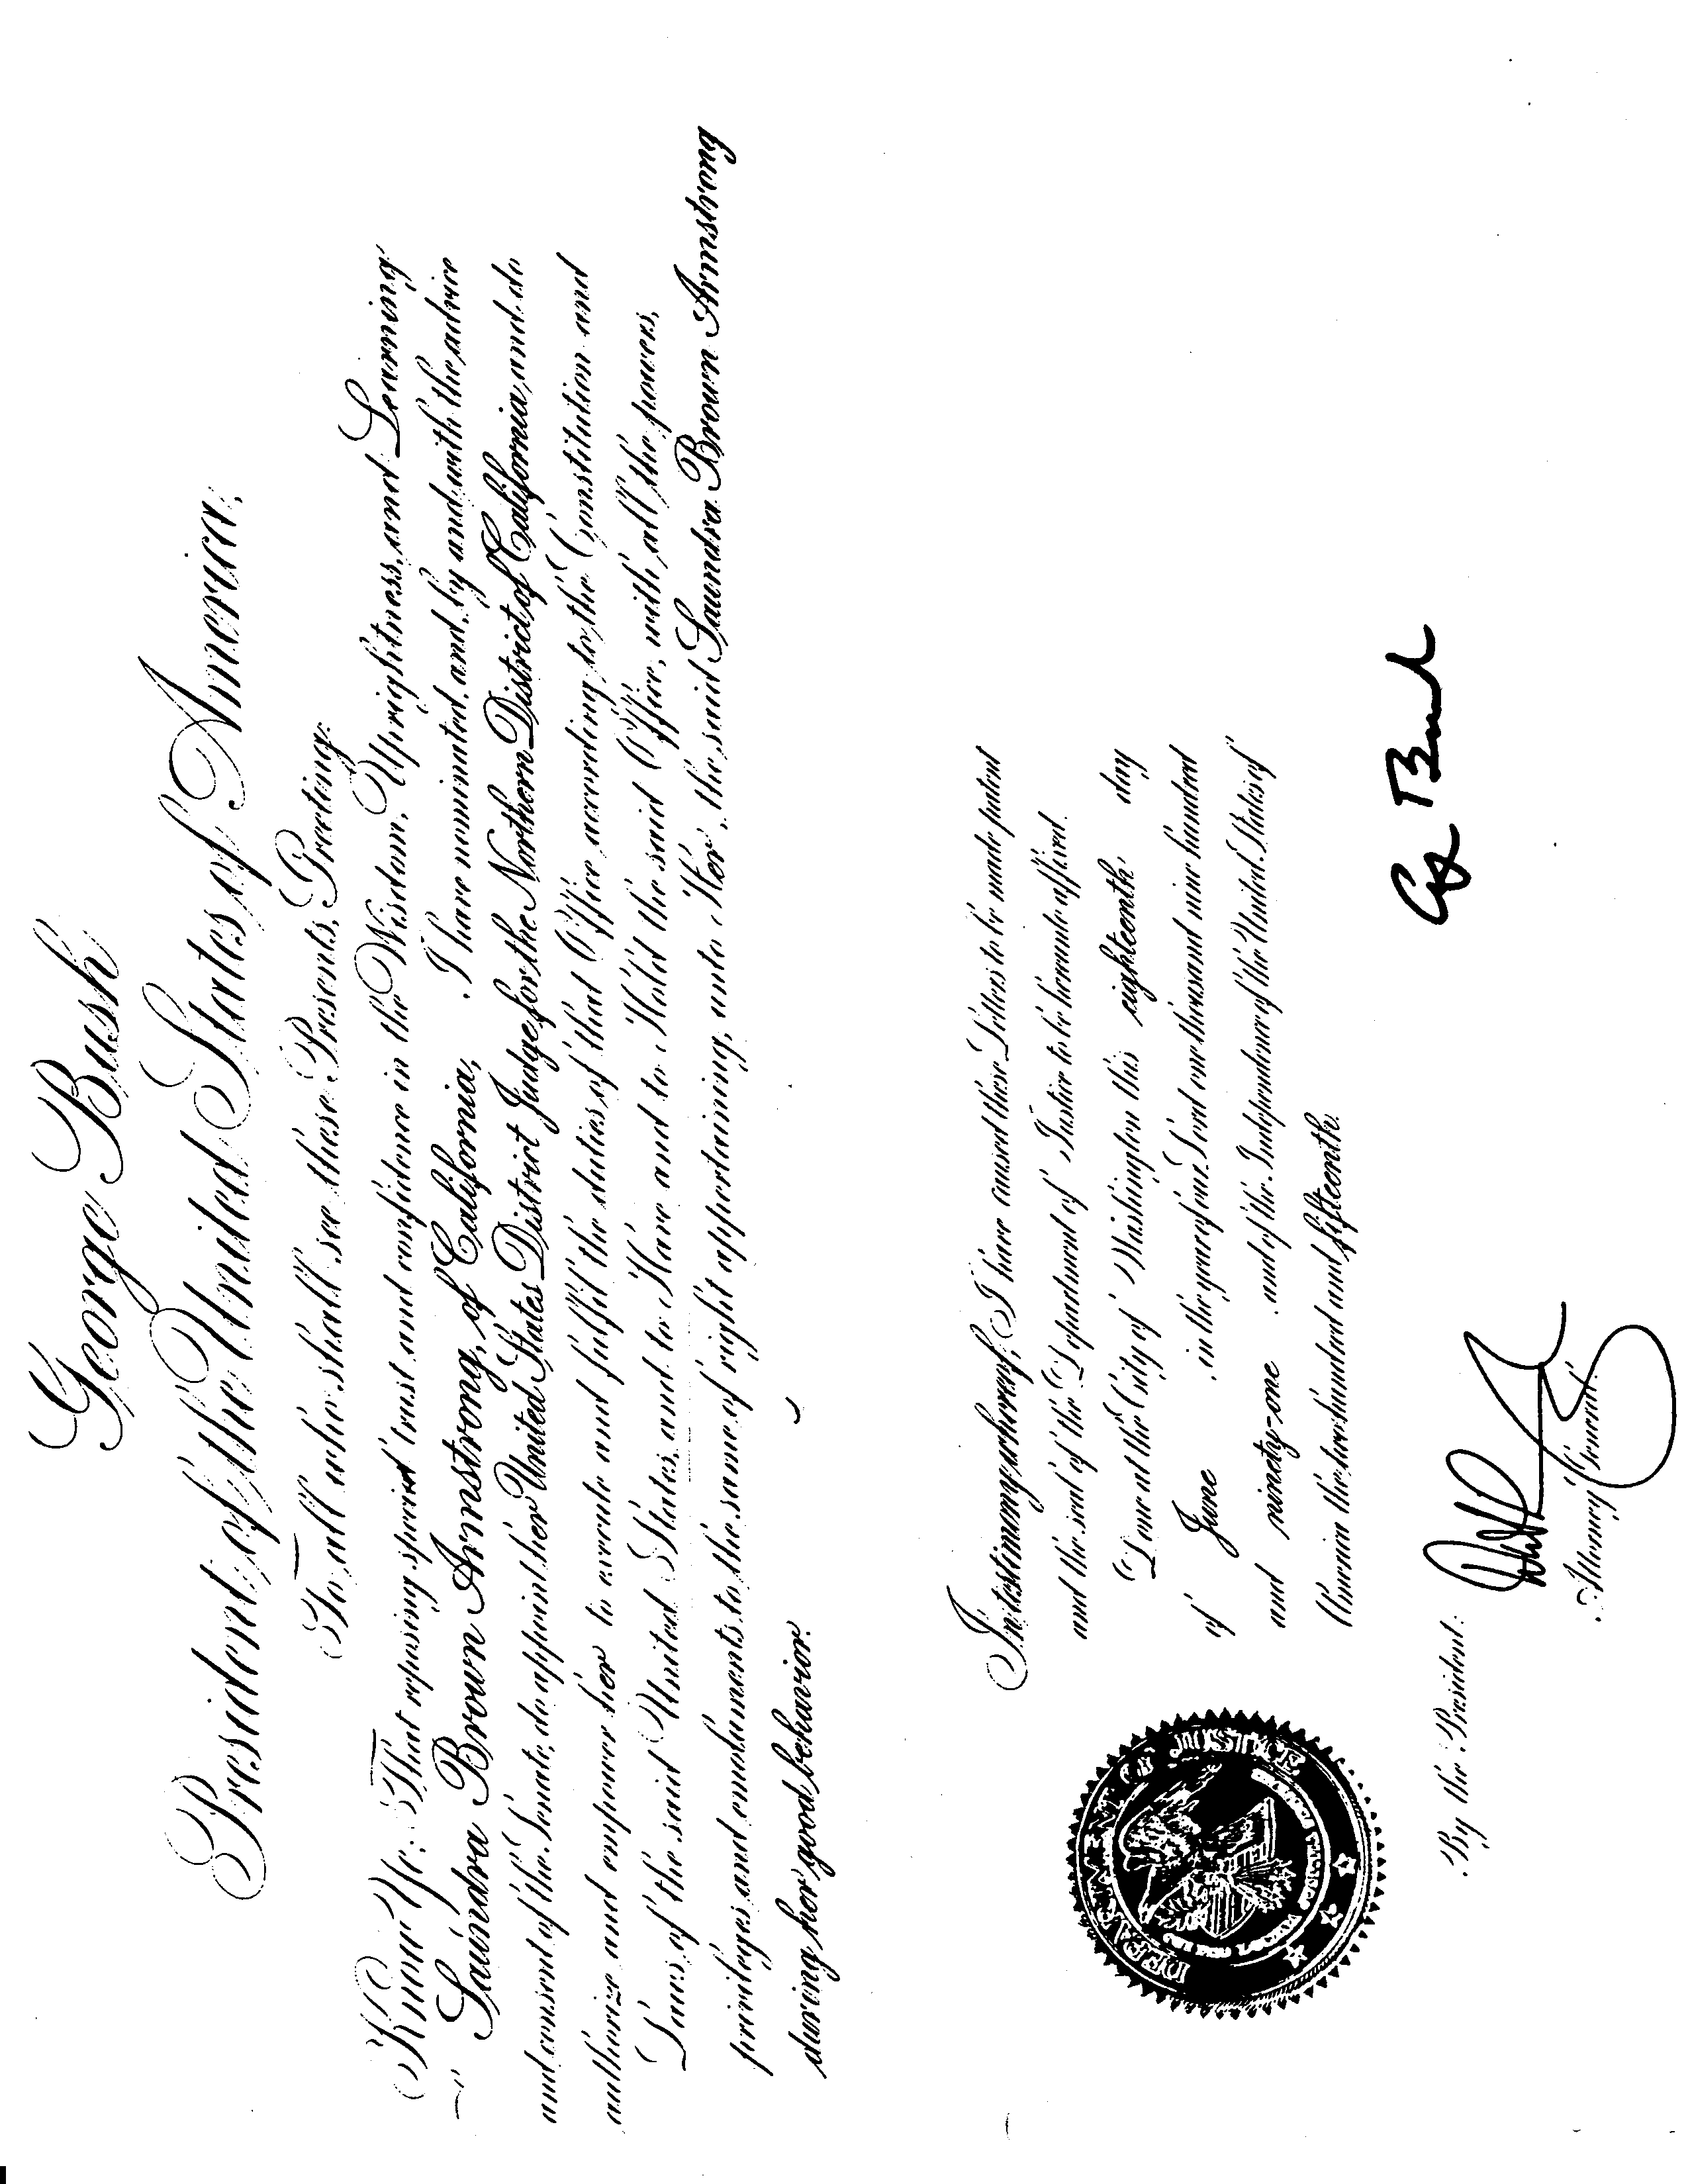 George Bush
President of the United States of America,
To all who shall see these Presents, Greeting:
Know Ye: That reposing special trust and confidence in the Wisdom, Uprightness, and Learning
of Saundra Brown Armstrong, of California, I have nominated, and, by and with the advice
and consent of the Senate, do appoint her United States District Judge for the Northern District of California, and do
authorize and empower her to execute and fulfil the duties of that Office according to the Constitution and
Laws of the said United States, and to Have and to Hold the said Office, with all the powers,
privileges, and emoluments to the same of right appertaining, unto Her, the said Saundra Brown Armstrong
during her good behavior.
In testimony whereof, I have caused these Letters to be made patent
and the seal of the Department of Justice to be hereunto affixed.
Done at the City of Washington this eighteenth day
of June in the year of our Lord one thousand nine hundred
and ninety-one and of the Independence of the United States of
America the two hundred and fifteenth.
G Bush
By the President:
Attorney General.
DEPARTMENT OF JUSTICE